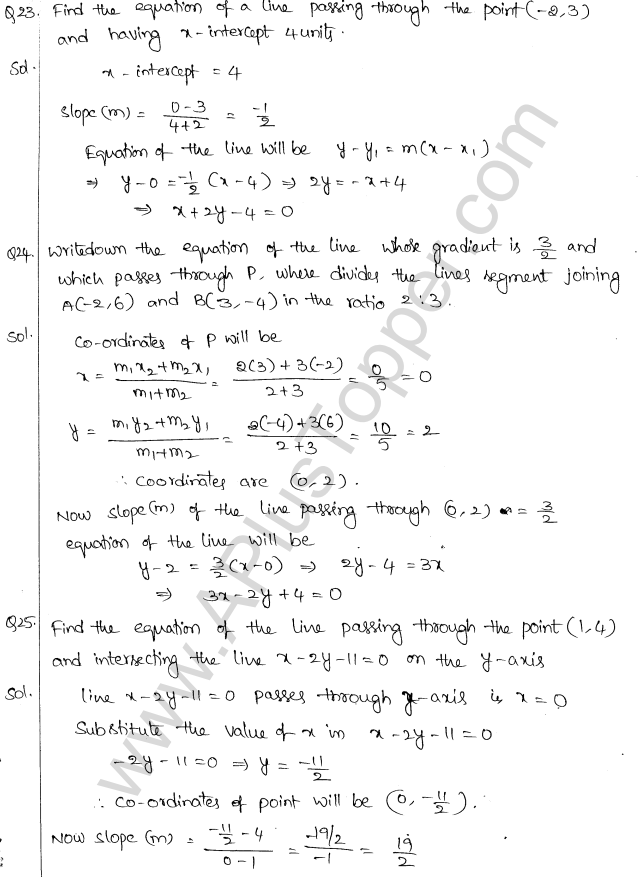 Q23. Find the equation of a line passing through the point (-2,3)
and having x-intercept 4 units.
Sol. x - intercept = 4
Slope (m) = (0-3)/(4+2) = -1/2
Equation of the line will be y-y₁ = m(x-x₁)
⇒ y-0 = -1/2 (x-4) ⇒ 2y = -x+4
⇒ x+2y-4=0
Q24. Writedown the equation of the line whose gradient is 3/2 and
which passes through P, where divides the lines segment joining
A(-2,6) and B(3,-4) in the ratio 2:3.
Sol. Co-ordinates of P will be
x = (m₁x₂+m₂x₁)/(m₁+m₂) = (2(3)+3(-2))/(2+3) = 0/5 = 0
y = (m₁y₂+m₂y₁)/(m₁+m₂) = (2(-4)+3(6))/(2+3) = 10/5 = 2
∴ Coordinates are (0,2).
Now slope(m) of the line passing through (0,2) = 3/2
equation of the line will be
y-2 = 3/2 (x-0) ⇒ 2y-4 = 3x
⇒ 3x-2y+4=0
Q25. Find the equation of the line passing through the point (1,4)
and intersecting the line x-2y-11=0 on the y-axis
Sol. line x-2y-11=0 passes through y-axis is x=0
Substitute the value of x in x-2y-11=0
-2y-11=0 ⇒ y = -11/2
∴ co-ordinates of point will be (0, -11/2).
Now slope (m) = (-11/2 - 4)/(0-1) = (-19/2)/(-1) = 19/2
www.APlusTopper.com